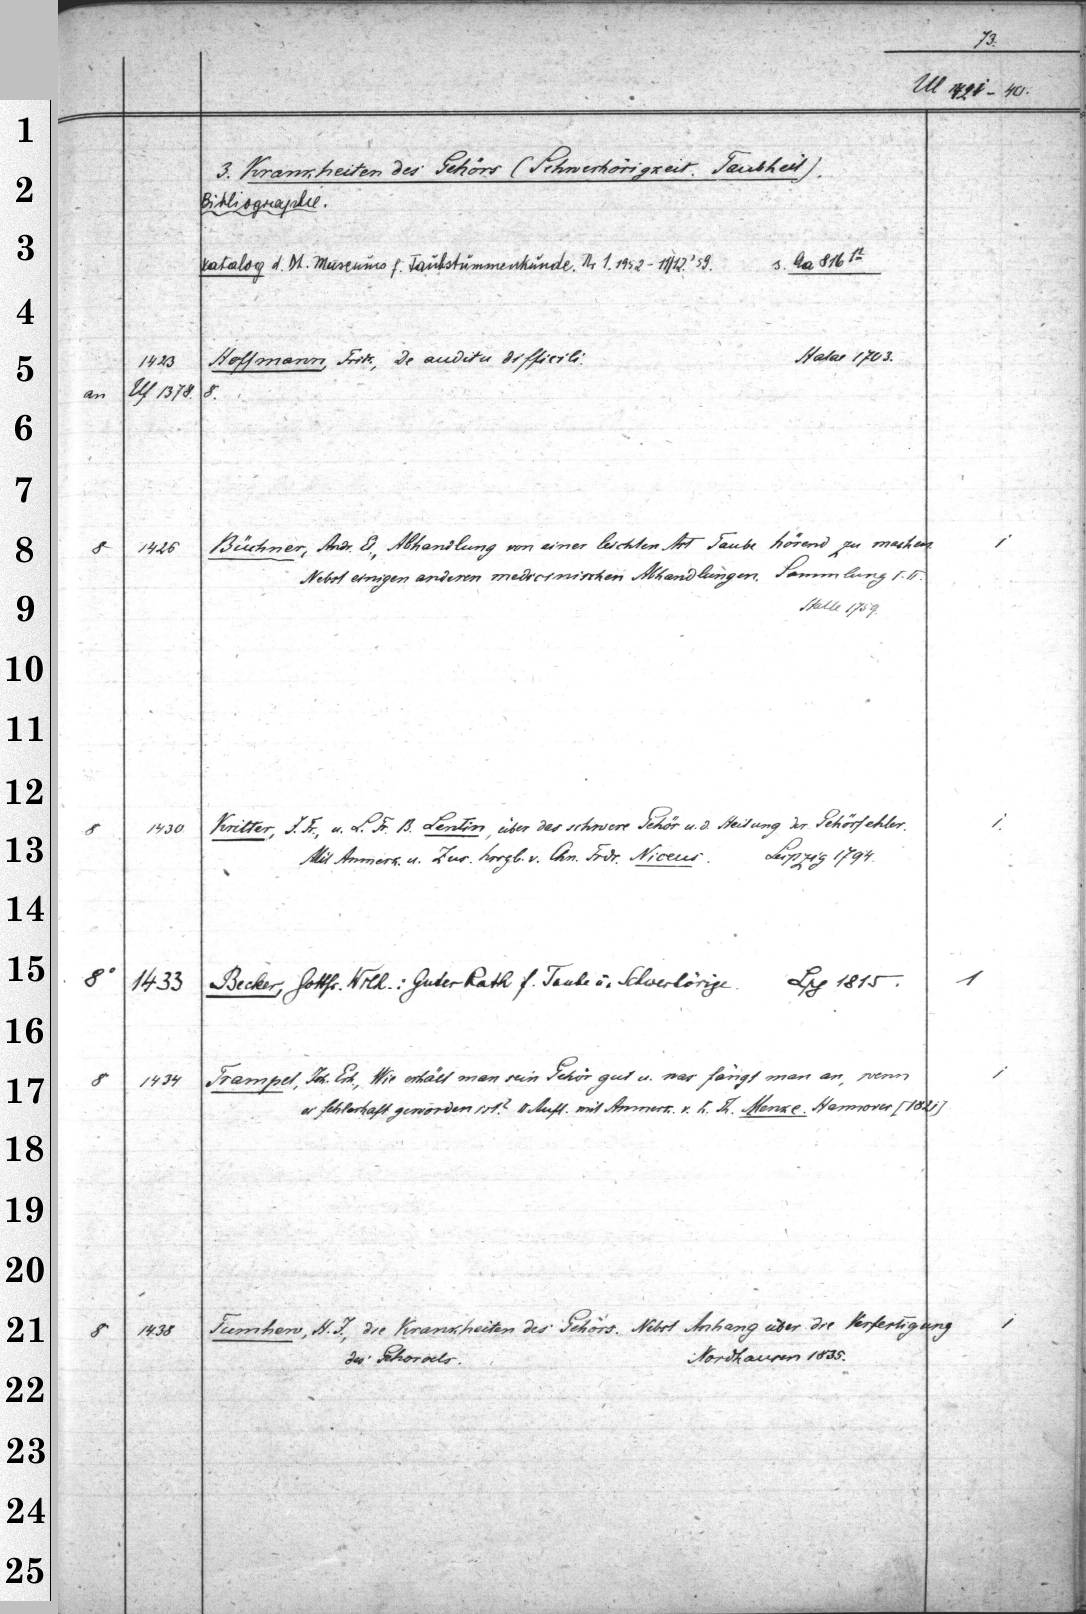 73.
Ul 1421 - 40.
3. Krankheiten des Gehörs (Schwerhörigkeit. Taubheit).
Bibliographie.
Katalog d. Dt. Museums f. Taubstummenkunde. Nr 1. 1952 - 11/12.'59. s. Aa 816 m
1423 Hoffmann, Frdr., De auditu difficili. Halae 1703.
an Uf 1378. 8.
8 1426 Büchner, Andr. E., Abhandlung von einer leichten Art Taube hörend zu machen 1
Nebst einigen anderen medicinischen Abhandlungen. Sammlung I. II.
Halle 1759.
8 1430 Kritter, J. Fr., u. L. Fr. B. Lentin, über das schwere Gehör u. d. Heilung der Gehörfehler. 1.
Mit Anmerk. u. Zus. hrsgb. v. Chn. Frdr. Niceus. Leipzig 1794.
8° 1433 Becker, Gottfr. Wilh.: Guter Rath f. Taube u. Schwerhörige. Lpg 1815. 1
8 1434 Trampel, Joh. Erh., Wie erhält man sein Gehör gut u. was fängt man an, wenn 1
es fehlerhaft geworden ist? II Aufl. mit Anmerk. v. K. Th. Menke. Hannover [1821]
8 1438 H. J., die Krankheiten des Gehörs. Nebst Anhang über die Verfertigung 1
des Gehöroels. Nordhausen 1835.
1
2
3
4
5
6
7
8
9
10
11
12
13
14
15
16
17
18
19
20
21
22
23
24
25